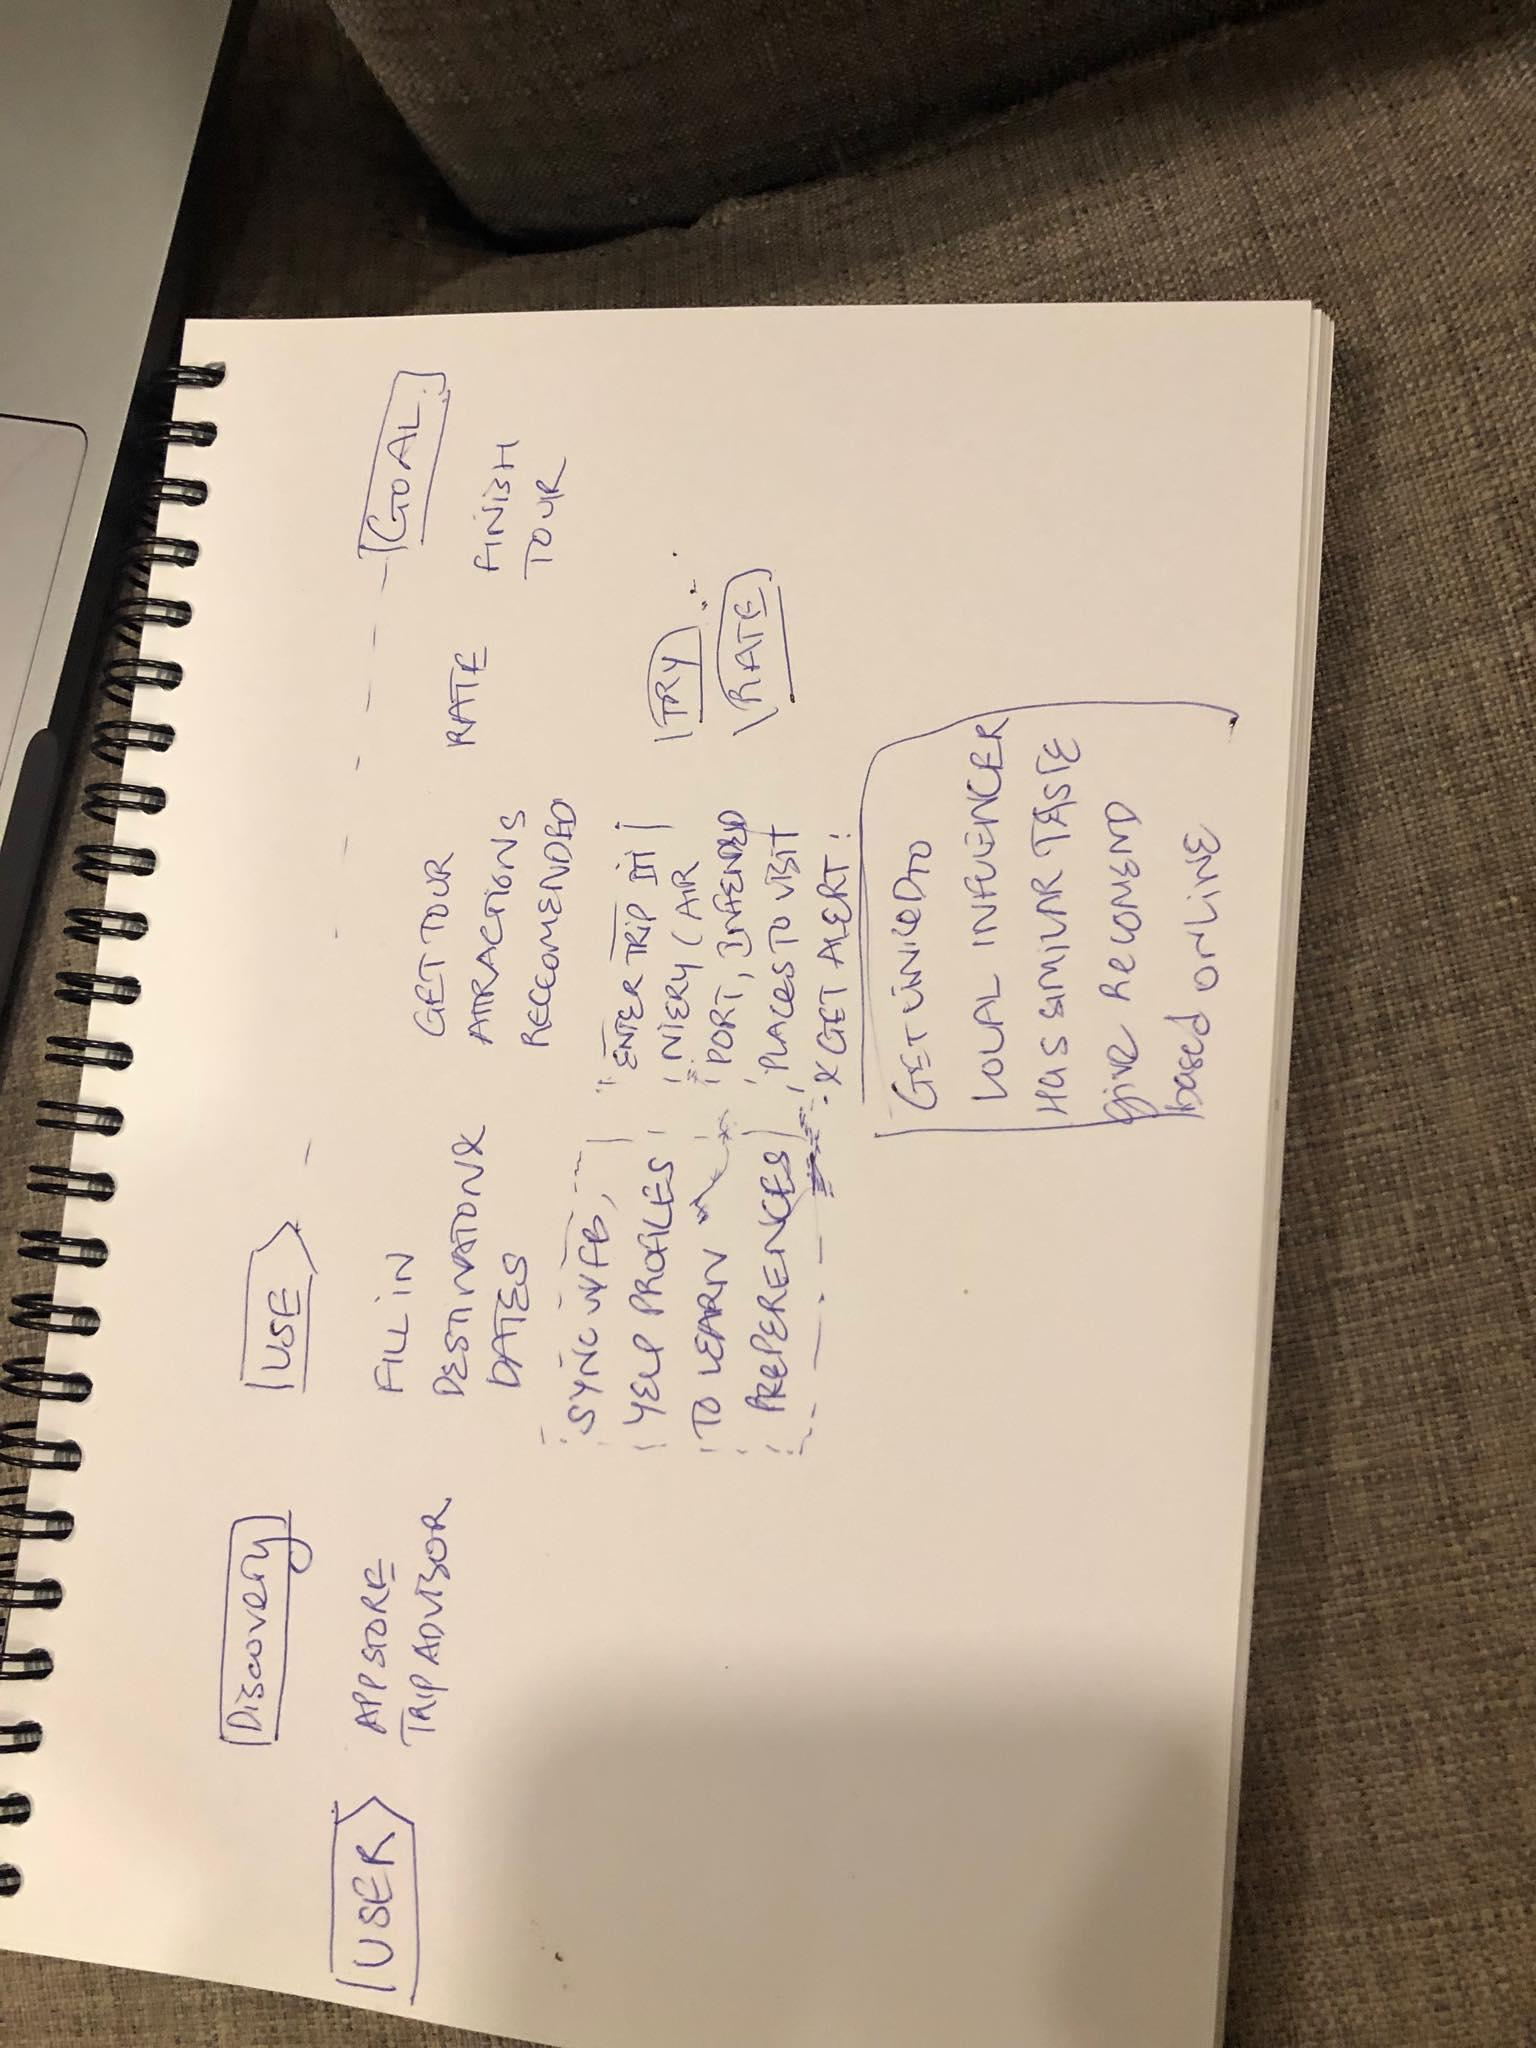 USER
Discovery
APP STORE
TRIP ADVISOR
USE
FILL IN
DESTINATION &
DATES
SYNC W/FB,
YELP PROFILES
TO LEARN
PREFERENCES
GET TOUR
ATTRACTIONS
RECCOMENDED
ENTER TRIP ITI
NIERY (AIR
PORT, INTENDED
PLACES TO VISIT
& GET ALERT:
GET LINKED TO
LOCAL INFLUENCER
HAS SIMILAR TASTE
give RECOMEND
based ONLINE
RATE
TRY
RATE
GOAL
FINISH
TOUR